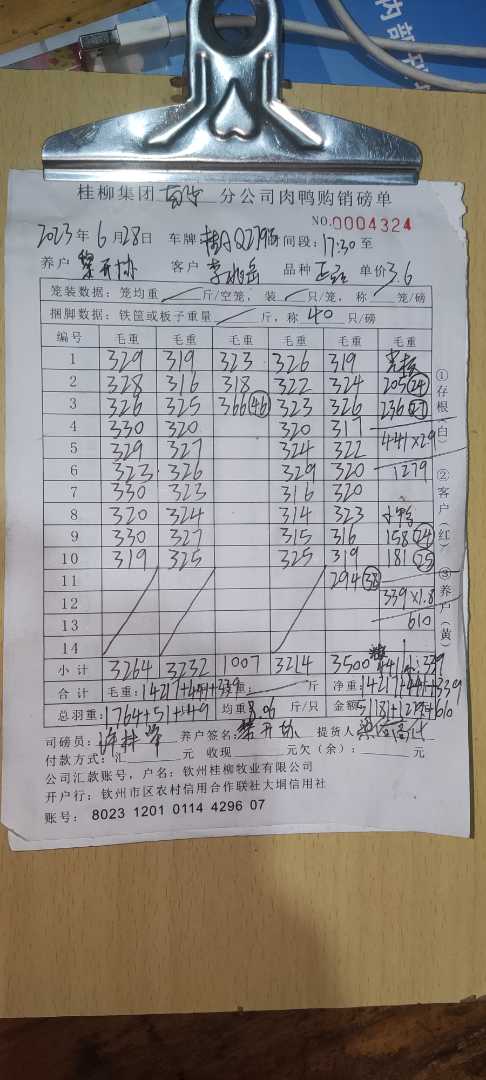 内部
桂柳集团 分公司肉鸭购销磅单
NO.0004324
2023年6月28日 车牌 时间段:17:30至
养户 黎开协 客户 李 品种 正 单价3.6
笼装数据:笼均重 斤/空笼,装 只/笼,称 笼/磅
捆脚数据:铁筐或板子重量 斤,称40只/磅
编号 毛重 毛重 毛重 毛重 毛重 毛重
1 329 319 323 326 319
2 328 316 318 322 324 205(24)
3 326 325 366(46) 323 326 236(27)
4 330 320 320 317 441×2.9
5 329 327 324 322
6 323 326 329 320 1279
7 330 323 316 320
8 320 324 314 323
9 330 327 315 316 158(24)
10 319 325 325 319 181(25)
11 294(38)
12 339×1.8
13 610
14
小计 3264 3232 1007 3214 3500 441 339
合计 毛重:14217+441+339 斤 净重:14217+441+339
总羽重:1764+51+49 均重8.06斤/只 金额:51181+1279+610
司磅员: 养户签名:黎开协 提货人:
付款方式:汇 元 收现 元欠(余): 元
公司汇款账号,户名:钦州桂柳牧业有限公司
开户行:钦州市区农村信用合作联社大垌信用社
账号: 8023 1201 0114 4296 07
①存根(白) ②客户(红) ③养户(黄)